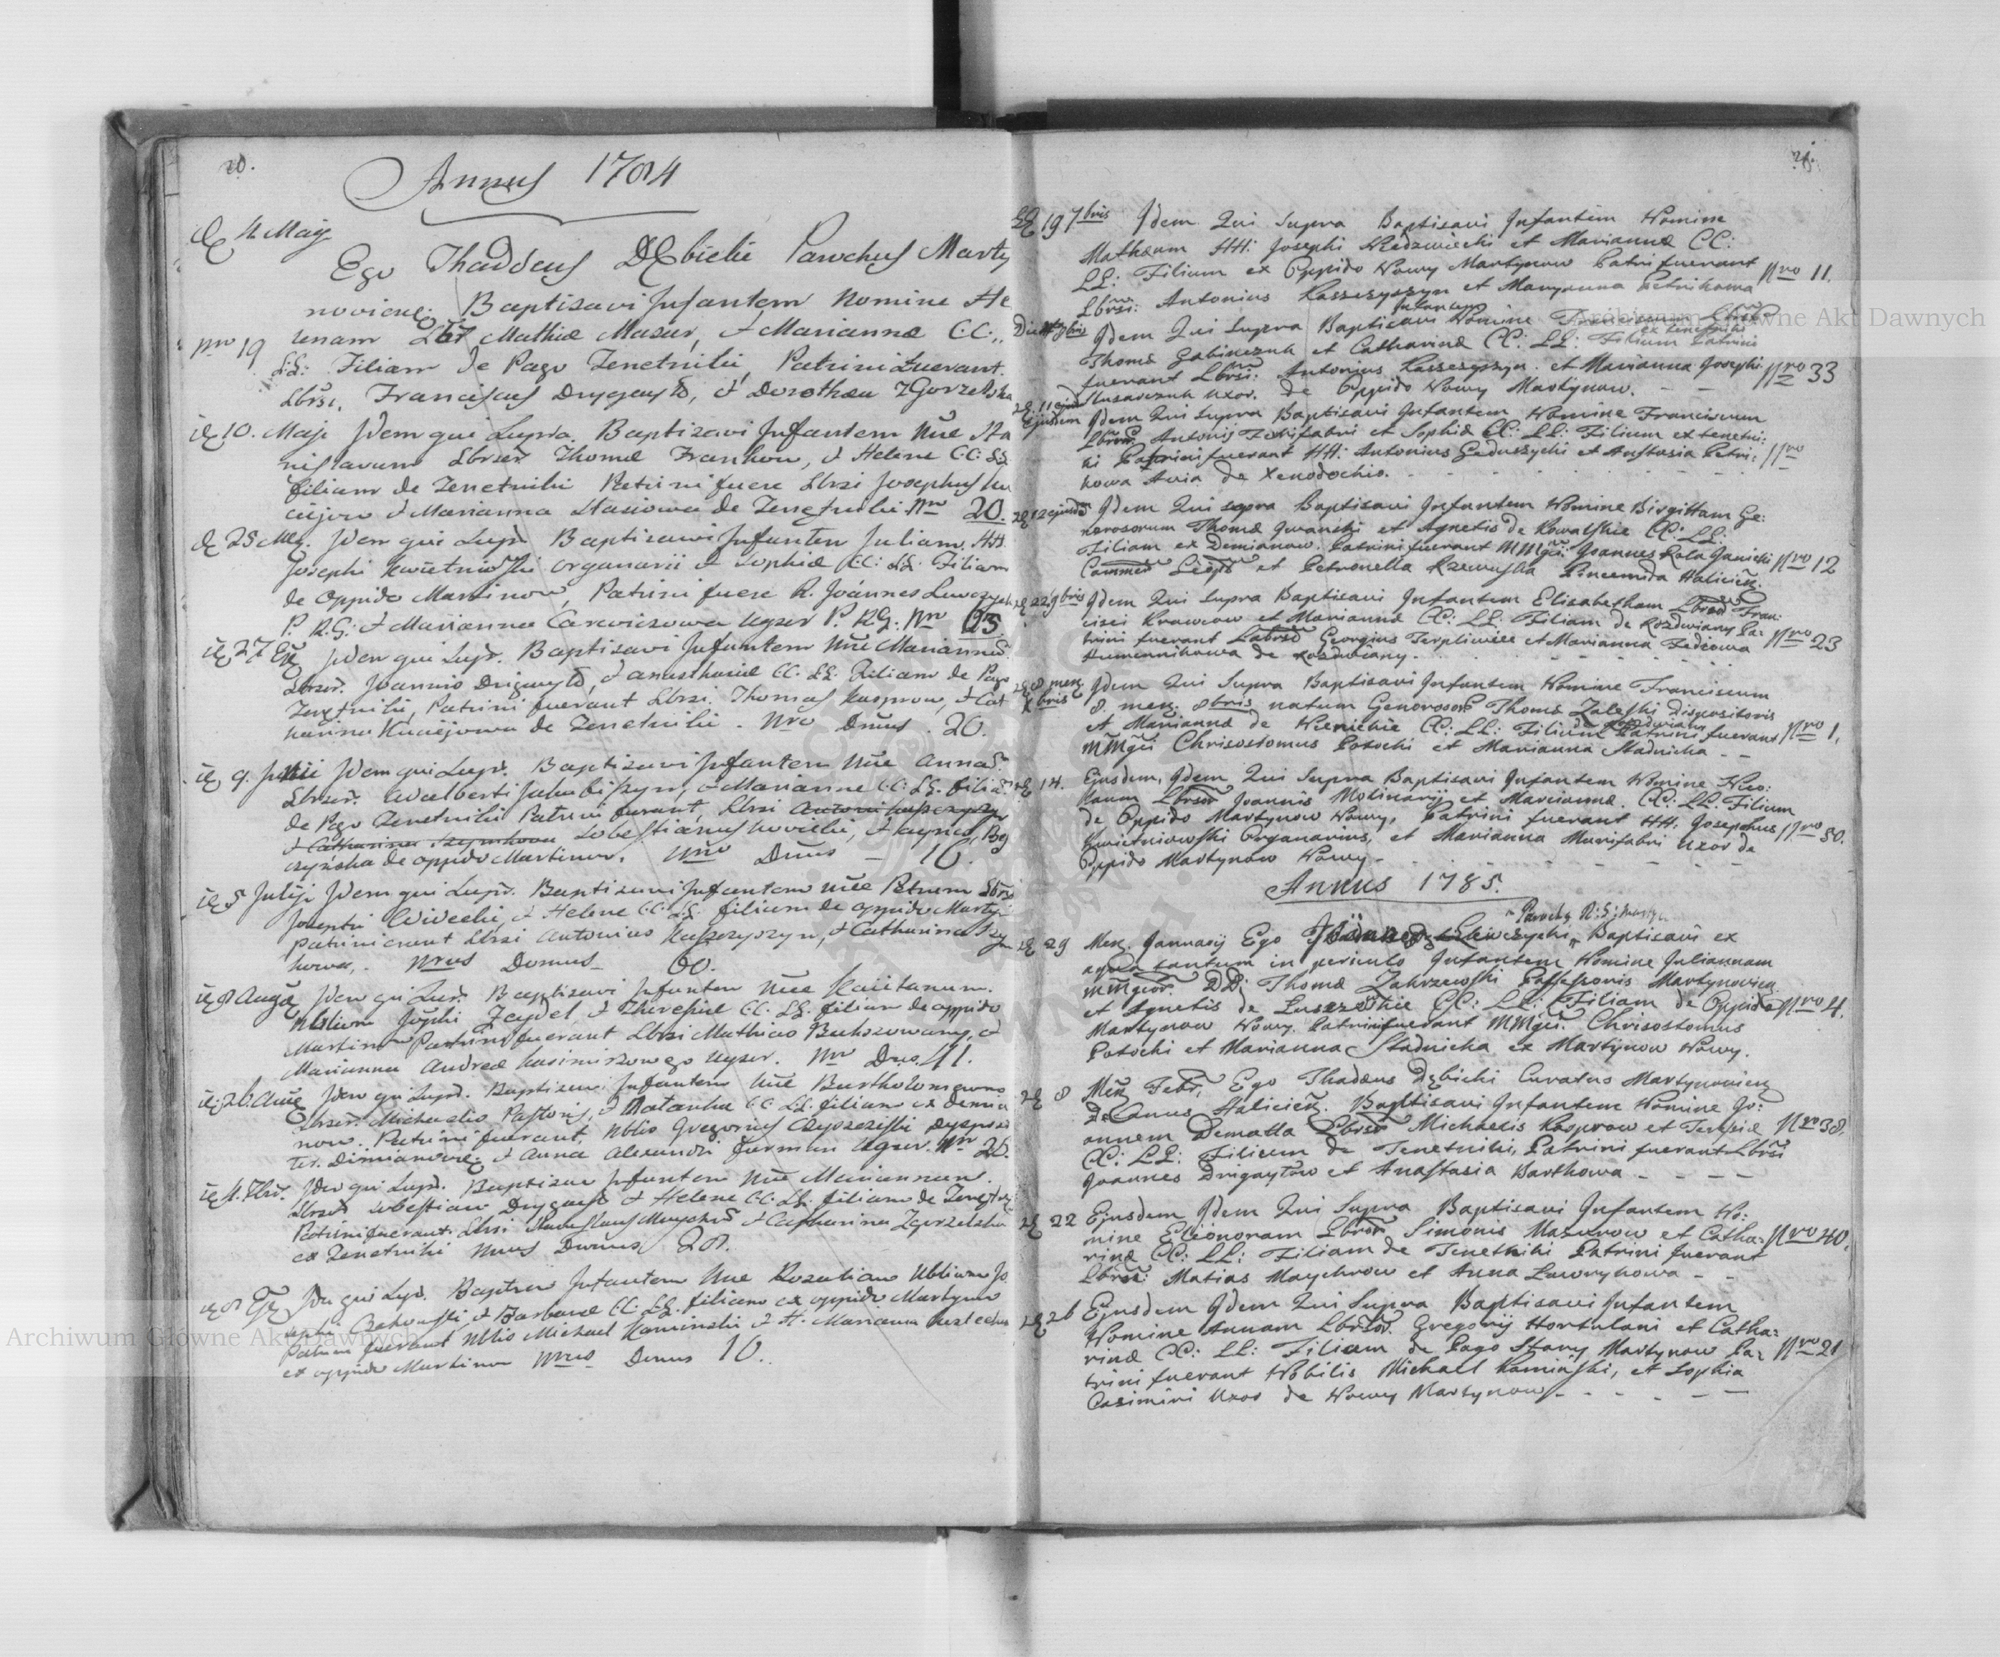 20.
Annus 1784
4 Maij
Ego Thaddeus Dębicki Parochus Marty
novien: Baptisavi Infantem Nomine He
Nro 19 lenam Mathiæ Mazur, et Mariannæ C.C.:
LL: Filiam de Pago Tenetniki, Patrini fuerunt
Lbrsi. Franciscus Drygayło, et Dorothea Zgorzelska
10. Maji Idem qui Supra Baptisavi Infantem Nne Sta
nislavum Lbrser. Thomæ Frankow, et Helene CC: LL
filium de Tenetniki Patrini fuere Lbrsi Josephus
et Marianna Stasiowa de Tenetniki Nro 20.
25 Maij. Idem qui Supr. Baptisavi Infantem Julian. HH
Josephi Kwietniowski organarii et Sophiæ CC: LL: Filiam
de Oppido Martinow, Patrini fuere R. Joannes Lewczycki
P. R.G: et Marianna Carewiczowa Uxor P. RG. Nro
27 Idem qui Supr. Baptisavi Infantem Nne Mariannam
Lbrser. Joannis Drigayło, et Anasthasiæ CC. LL. Filiam de Pago
Tenetniki, Patrini fuerunt Lbrsi. Thomas Kasprow, et Cat
harina Kuciejowa de Tenetniki. Nro Dmus. 20.
9. Junii Idem qui Supr. Baptisavi Infantem Nne Annam
Lbrser. Adalberti Jakubiszyn, et Marianne CC. LL. filia
de Pago Tenetniki Patrini fuerunt, Lbrsi Antoni Kaszczyszyn
et Catharina Szymkowa Sobestianus Nowicki, et Agnes
de oppido Martinow. Nro Dmus — 16.
5 Julij Idem qui Supr. Baptisavi Infantem Nne Petrum Lbrs
Josephi et Helene CC. LL. filium de oppido Marty
Patrini erant Lbrsi Antonius Kaszczyszyn, et Catharina
kowa. Nrus Domus 60.
8 Aug Idem qui Supr. Baptisavi Infantem Nne Kaiitanum.
Nblium Josephi Zeydel, et Theresiæ CC. LL. filium de oppido
Martinow Patrini fuerunt Lbrsi Mathias Bukszowany, et
Marianna Andreæ Kasimirzowego Uxor. Nro Dus. 41.
26. Aug Idem qui Supr. Baptisavi Infantem Nne Bartholomeum
Lbrser. Michaelis Pastoris, et CC LL. filium ex Demia
now. Patrini fuerunt, Nblis Gregorius dyspozi
tor. Dimianovien et Anna Alexandri Furman Uxor. Nro 26.
4. 7bris. Idem qui Supr. Baptisavi Infantem Nne Mariannam.
Lbrser. Sobestian Drygayło et Helene CC. LL. filiam de Tenetniki
Patrini fuerunt. Lbrsi et Catharina Zgorzelska
ex Tenetniki Nrus Domus 28.
8 Idem qui Supr. Baptisavi Infantem Nne Rozaliam Nblium Jo
sephi et Barbaræ CC. LL. filiam ex oppido Martynow
Patrini fuerunt Nblis Michael Kaminski et H. Marianna
ex oppido Martinow Nrus Domus 10.
21.
19 7bris Idem Qui Supra Baptisavi Infantem Nomine
Mathæum HH: Josephi Niedzwiecki et Mariannæ CC:
LL: Filium ex Oppido Nowy Martynow Patri fuerant Nro 11.
Lbrsi: Antonius Kaszczyszyn et Maryanna Petrikowa
Idem Qui Supra Baptisavi Infantem Nomine Franciscum
ex Tenetniki
Thomæ Gabinczuk et Catharinæ CC: LL: Filium Patrini
fuerant Lbrsi: Antonius Kaszczyszyn. et Marianna Josephi Nro 33
Slusarczuk Uxor. de Oppido Nowy Martynow. — —
11 Ejusdem Idem Qui Supra Baptisavi Infantem Nomine Franciscum
Lbror. Antonij Fabri et Sophiæ CC: LL: Filium ex Tenetni:
ki Patrini fuerant HH: Antonius Geduszycki et Anstasia Petri: Nro
kowa Avia de Xenodochio.
12 ejusdem Idem Qui supra Baptisavi Infantem Nomine Birgittam Ge:
nerosorum Thomæ Jwanski et Agnetis de Kowalskie CC: LL:
Filiam ex Demianow. Patrini fuerant MMgci: Joannes Rola Janicki Nro 12
Commed Leop et Petronella Rzewuska Pincernida Halicien.
22 9bris Idem Qui Supra Baptisavi Infantem Elisabetham Lbror Fran:
cisci Krawcow et Mariannæ CC: LL: Filiam de Rozdwiany Pa:
trini fuerant Laborsi Georgius Terpliwiec et Marianna Fediowa Nro 23
Humennikowa de Rozdwiany.
8 mens. Xbris Idem Qui Supra Baptisavi Infantem Nomine Franciscum
8. mens. 8bris natum Generosor Thomæ Zaleski dispositoris
et Mariannæ de Wienickie CC: LL: Filium Patrini fuerant Nro 1.
MMgci Chrisostomus Potocki et Marianna Stadnicka — —
14. Ejusdem, Idem Qui Supra Baptisavi Infantem Nomine Nico:
laum Lbror Joannis Molinarij et Mariannæ. CC: LL: Filium
de Oppido Martynow Nowy, Patrini fuerant HH: Josephus Nro 50.
Kwietniowski Organarius, et Marianna Murifabri Uxor de
Oppido Martynow Nowy
Annus 1785.
Parochy R: G: Martyn
29 Mens. Januarij Ego Joannes Lewczycki, Baptisavi ex
aqua tantum in periculo Infantem Nomine Juliannam
MMgcor. DD: Thomæ Zakrzewski Possessoris Martynovien
et Agnetis de Luszczewskie CC: LL: Filiam de Oppido Nro 4.
Martynow Nowy. Patrini fuerant MMgci. Chrisostomus
Potocki et Marianna Stadnicka ex Martynow Nowy.
8 Mens Febr. Ego Thadeus Dębicki Curatus Martynovien
Decanus Halicien. Baptisavi Infantem Nomine Jo:
annem Dematta Lbror Michaelis Kasprow et Teresiæ Nro 38.
CC: LL: Filium de Tenetniki, Patrini fuerant Lbrsi
Joannes Drigaytow et Anastasia Barthowa — — —
22 Ejusdem Idem Qui Supra Baptisavi Infantem No:
mine Eleonoram Lbror Simonis Mazurow et Catha: Nro 40.
rinæ CC: LL: Filiam de Tenetniki Patrini fuerant
Lbrsi: Matias Maychrow et Anna Lawrykowa — —
26 Ejusdem Idem Qui Supra Baptisavi Infantem
Nomine Annam Lbror. Gregorij Hortulani et Catha:
rinæ CC: LL: Filiam de Pago Stary Martynow Pa: Nro 21
trini fuerant Nobilis Michael Kaminski, et Sophia
Casimiri Uxor de Nowy Martynow
Archiwum Główne Akt Dawnych
Archiwum Główne Akt Dawnych